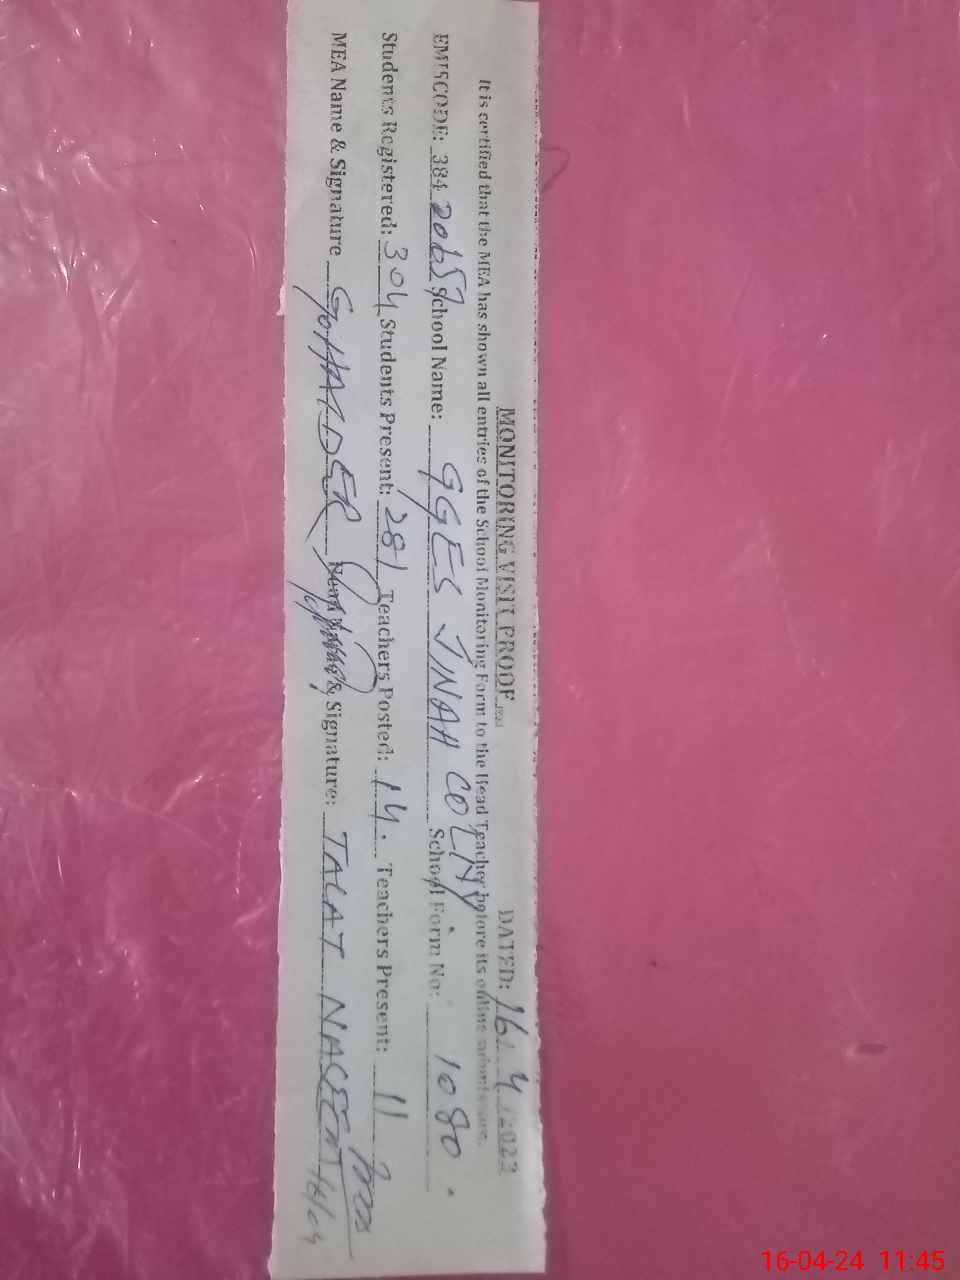 MONITORING VISIT PROOF DATED: 16/4/2023
It is certified that the MEA has shown all entries of the School Monitoring Form to the Head Teacher before its online
EMISCODE: 38420657 School Name: GGES JINAH COLNY. School Form No: 1080.
Students Registered: 304 Students Present: 281 Teachers Posted: 14. Teachers Present: 11
MEA Name & Signature G.HAIDER & Signature: TALAT
16-04-24 11:45